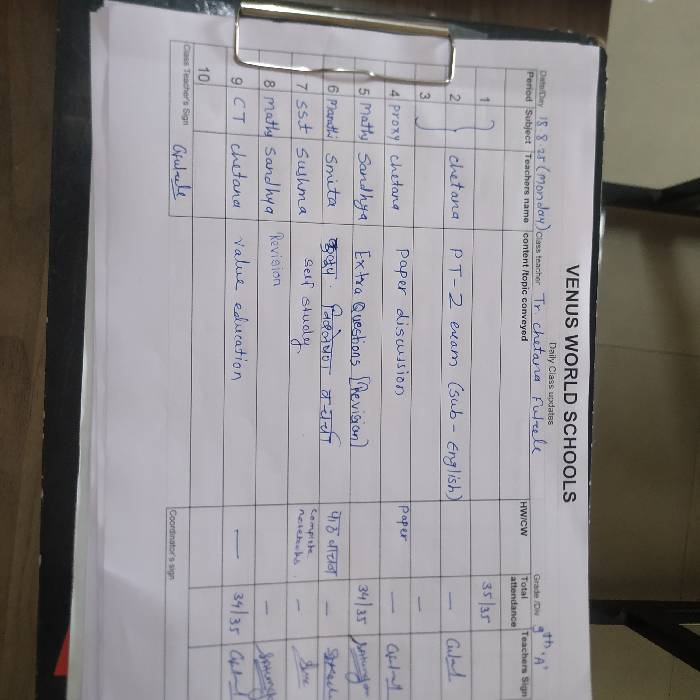 VENUS WORLD SCHOOLS
Daily Class updates
Date/Day 18.8.25 (Monday) Class teacher Tr. chetana Fulzele Grade /Div 9th 'A'
Period Subject Teachers name content /topic conveyed HW/CW Total attendance Teachers Sign
1 35/35
2 chetana PT-2 exam (sub-English) —
3 —
4 proxy chetana Paper discussion Paper —
5 Maths Sandhya Extra Questions [Revision] 34/35
6 Marathi Smita —
7 SST Sushma self study complete notebooks. —
8 Maths Sandhya Revision —
9 CT chetana value education — 34/35
10
Class Teacher's Sign Coordinator's sign